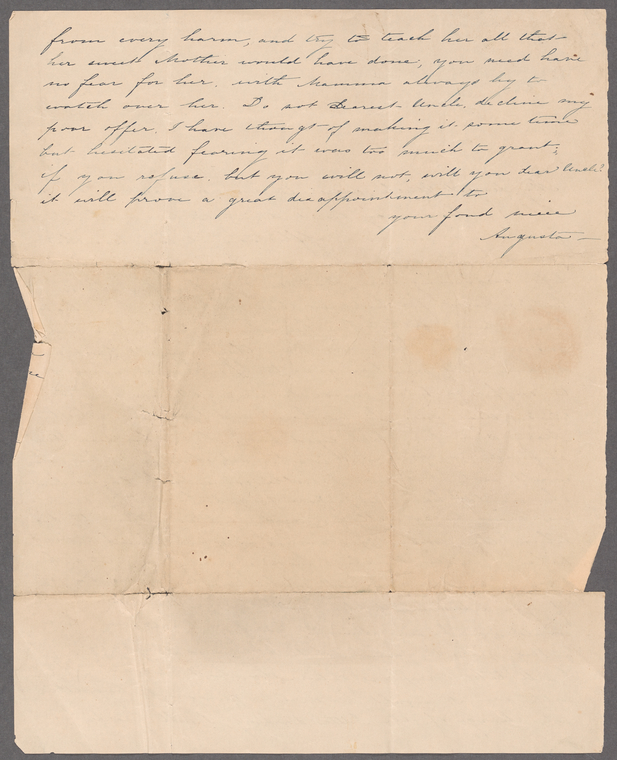 from every harm, and try to teach her all that
her sweet Mother would have done, you need have
no fear for her. with Mamma always by to
watch over her. Do not Dearest Uncle, decline my
poor offer, I have thougt of making it some time
but hesitated fearing it was too much to grant,
if you refuse, but you will not, will you dear Uncle?
it will prove a great disappointment to
your fond niece
Augusta